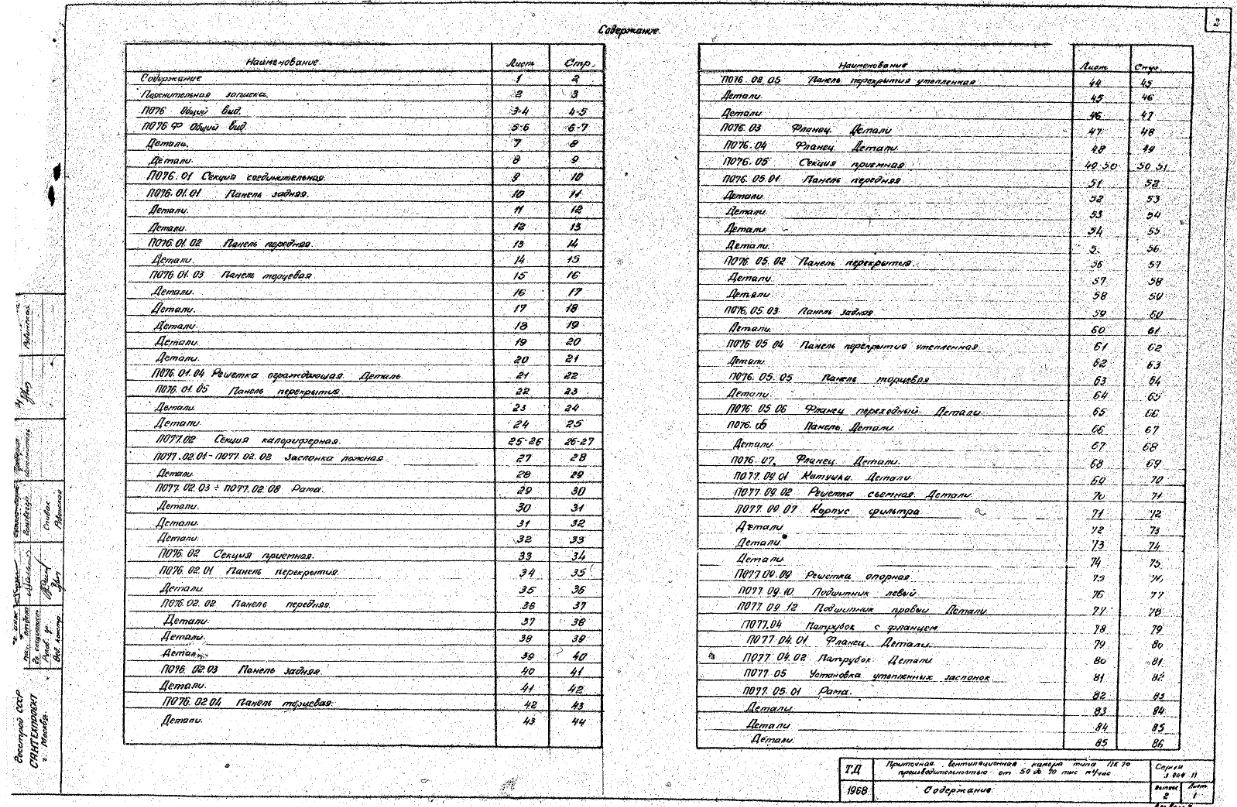 2
Содержание
Наименование Лист Стр.
Содержание 1 2
Пояснительная записка. 2 3
П076 Общий вид. 3-4 4-5
П076 Ф Общий вид. 5-6 6-7
Детали. 7 8
Детали. 8 9
П076.01 Секция соединительная. 9 10
П076.01.01 Панель задняя. 10 11
Детали. 11 12
Детали. 12 13
П076.01.02 Панель передняя. 13 14
Детали. 14 15
П076.01.03 Панель торцевая 15 16
Детали. 16 17
Детали. 17 18
Детали. 18 19
Детали. 19 20
Детали. 20 21
П076.01.04 Решетка ограждающая. Деталь 21 22
П076.01.05 Панель перекрытия 22 23
Детали 23 24
Детали 24 25
П077.02 Секция калориферная. 25-26 26-27
П077.02.01-П077.02.02 Заслонка ложная 27 28
Детали 28 29
П077.02.03 ÷ П077.02.08 Рама. 29 30
Детали. 30 31
Детали. 31 32
Детали. 32 33
П076.02 Секция приемная. 33 34
П076.02.01 Панель перекрытия. 34 35
Детали. 35 36
П076.02.02 Панель передняя. 36 37
Детали. 37 38
Детали. 38 39
Детали. 39 40
П076.02.03 Панель задняя. 40 41
Детали. 41 42
П076.02.04 Панель торцевая. 42 43
Детали. 43 44
Наименование Лист Стр.
П076.02.05 Панель перекрытия утепленная 44 45
Детали 45 46
Детали 46 47
П076.03 Фланец. Детали 47 48
П076.04 Фланец. Детали. 48 49
П076.05 Секция приемная 49-50 50-51
П076.05.01 Панель передняя 51 52
Детали 52 53
Детали 53 54
Детали 54 55
Детали. 5 56
П076.05.02 Панель перекрытия. 56 57
Детали. 57 58
Детали 58 59
П076.05.03 Панель задняя 59 60
Детали. 60 61
П076.05.04 Панель перекрытия утепленная 61 62
Детали. 62 63
П076.05.05 Панель торцевая 63 64
Детали. 64 65
П076.05.06 Фланец переходный Детали 65 66
П076.06 Панель. Детали 66 67
Детали. 67 68
П076.07. Фланец. Детали. 68 69
П077.09.01 Катушка. Детали 69 70
П077.09.02 Решетка съемная. Детали 70 71
П077.09.07 Корпус фильтра 71 72
Детали 72 73
Детали 73 74
Детали 74 75
П077.09.09 Решетка опорная. 75 76
П077.09.10 Подшипник левый 76 77
П077.09.12 Подшипник правый Детали 77 78
П077.04 Патрубок с фланцем 78 79
П077.04.01 Фланец. Детали. 79 80
П077.04.02 Патрубок Детали 80 81
П077.05 Установка утепленных заслонок 81 82
П077.05.01 Рама. 82 83
Детали 83 84
Детали 84 85
Детали. 85 86
Госстрой СССР
САНТЕХПРОЕКТ
г. Москва.
ТД Приточная вентиляционная камера типа ПК 70
производительностью от 50 до 70 тыс м³/час
Серия
1968 Содержание
Выпуск Лист
2 1